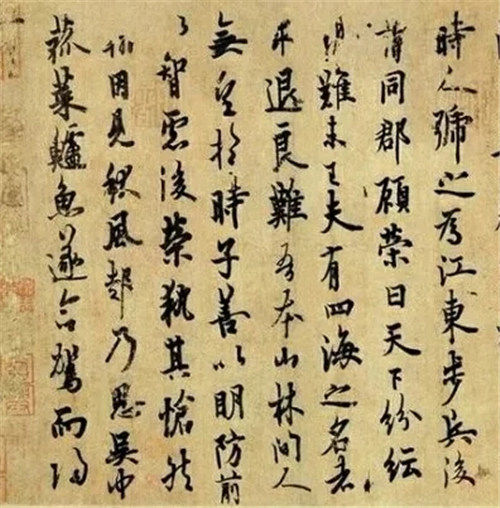 時人號之為江東步兵後
謂同郡顧榮曰天下紛紜
禍難未已夫有四海之名者
求退良難吾本山林間人
無望於時子善以明防前
以智慮後榮執其愴然
翰因見秋風起乃思吳中
菰菜鱸魚遂命駕而歸